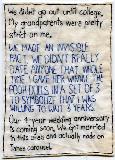 We didn't go out until college.
My grandparents were pretty
strict on me.
WE MADE AN INVISIBLE
PACT. WE DIDN'T REALLY
DATE ANYONE THAT WHOLE
TIME. I GAVE HER WINNIE THE
POOH DOLLS IN A SET OF 3
TO SYMBOLIZE THAT I WAS
WILLING TO WAIT 3 YEARS.
Our 4-year wedding anniversary
is coming soon. We got married
in this area and actually rode on
Janes carousel.